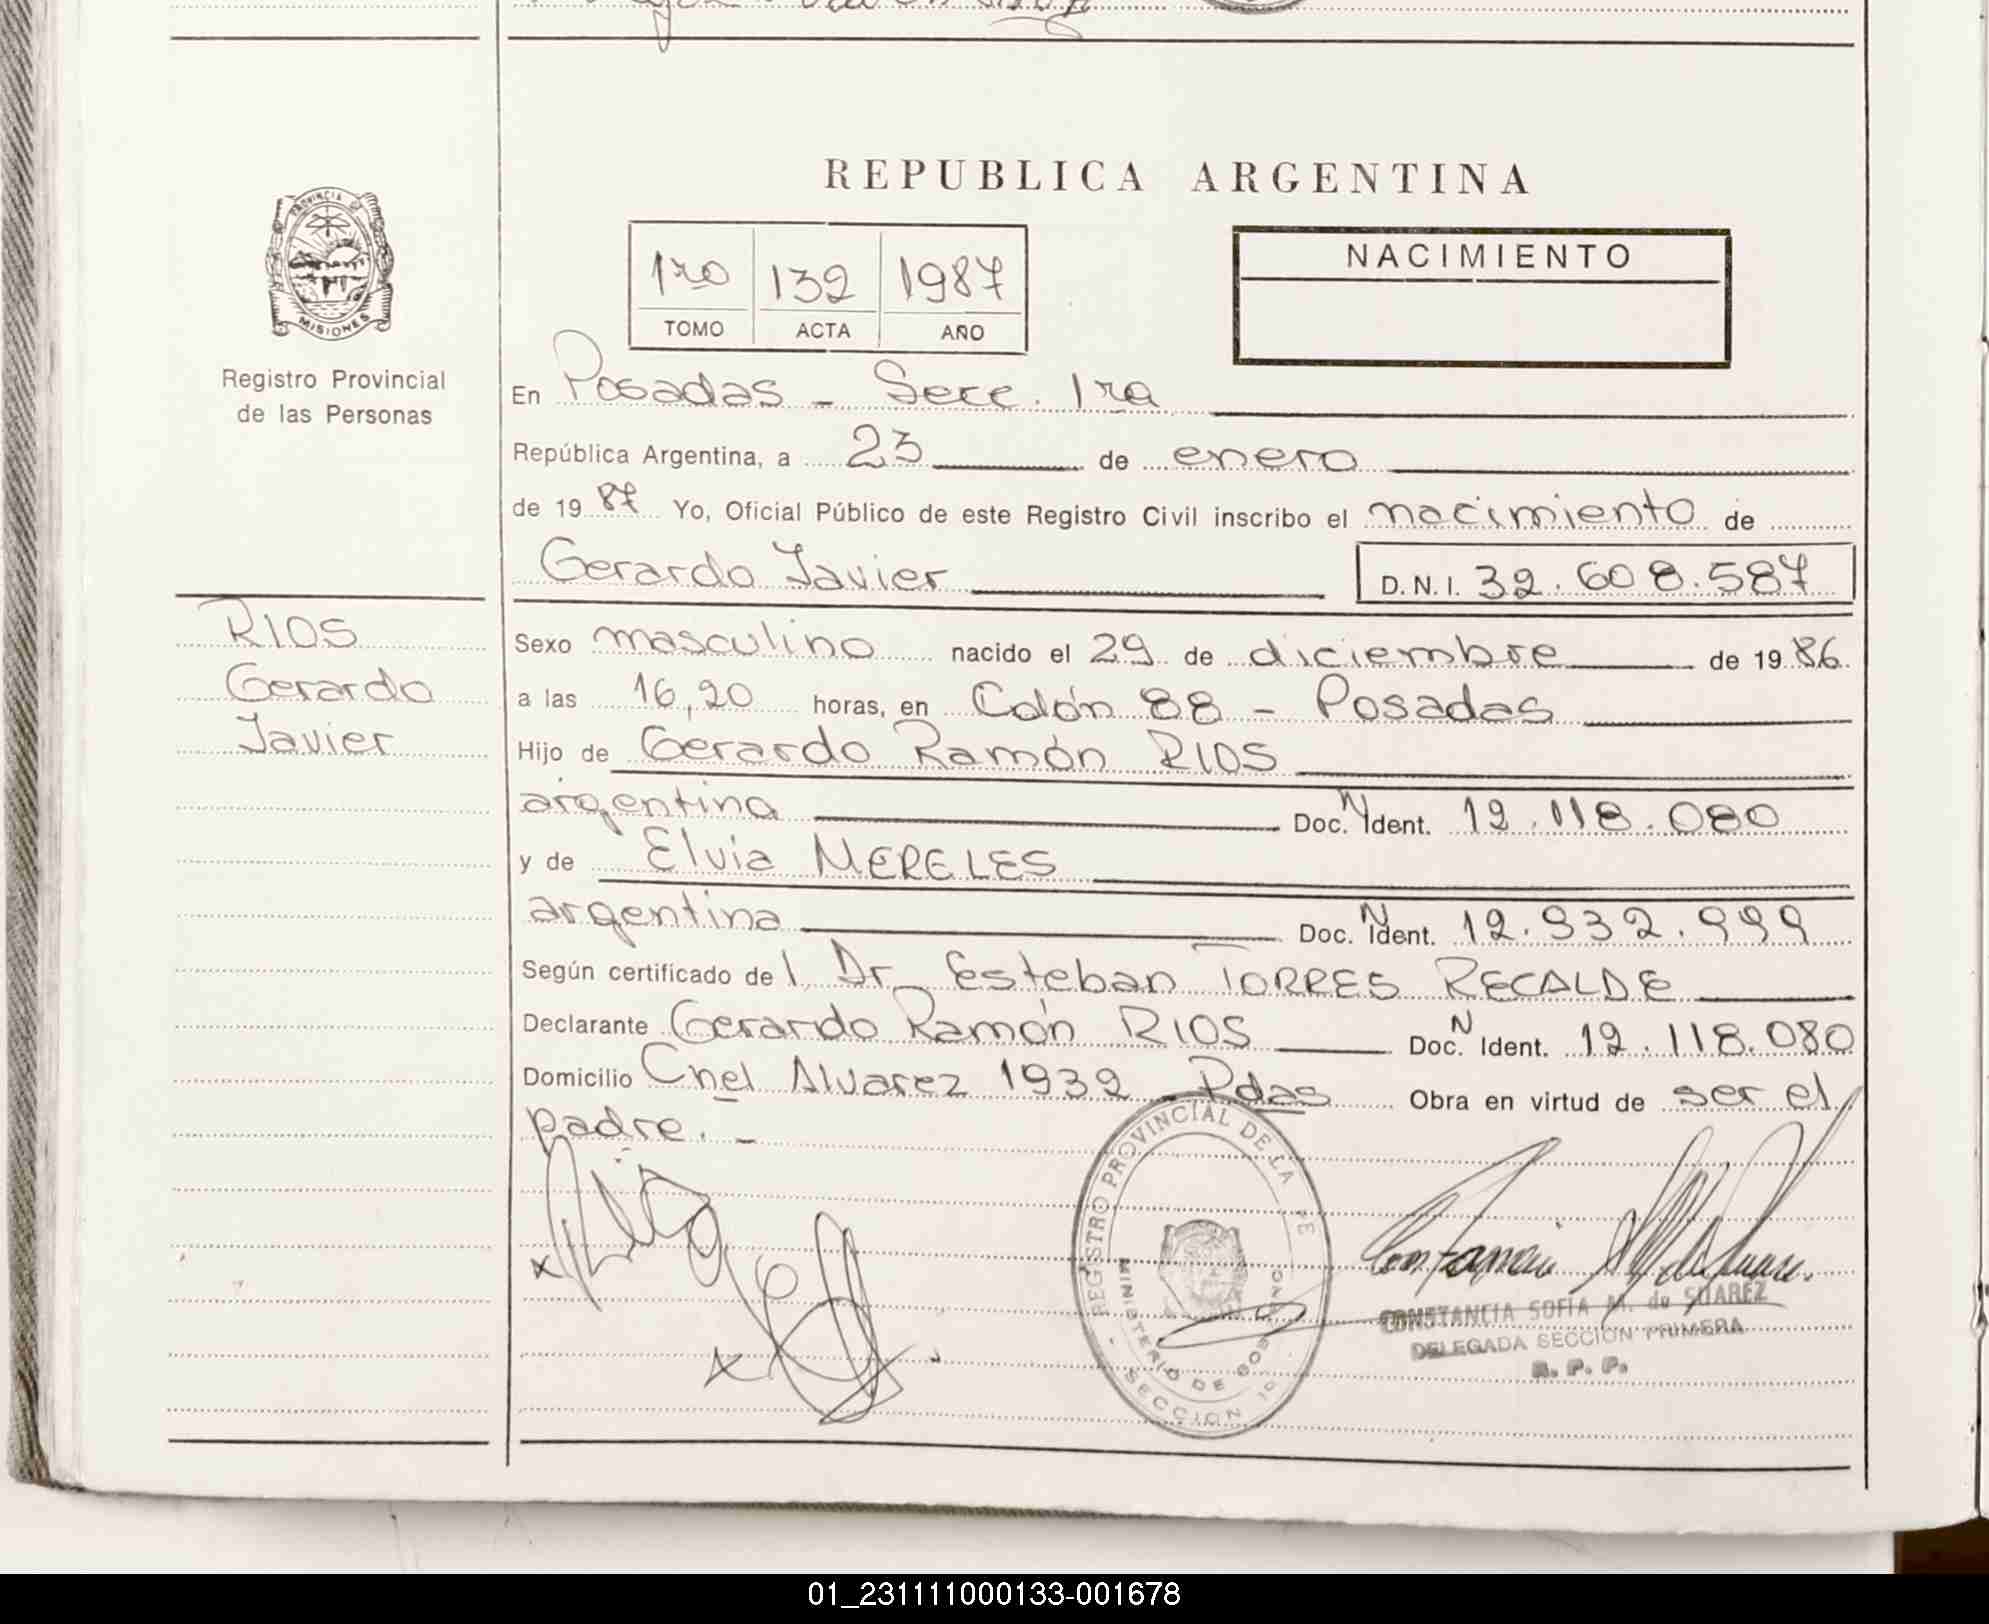 REPUBLICA ARGENTINA
PROVINCIA DE
MISIONES
Registro Provincial
de las Personas
1ro 132 1987
TOMO ACTA AÑO
NACIMIENTO
En Posadas - Secc. 1ra
República Argentina, a 23 de enero
de 1987 Yo, Oficial Público de este Registro Civil inscribo el nacimiento de
Gerardo Javier D.N.I. 32.608.587
RIOS
Gerardo
Javier
Sexo masculino nacido el 29 de diciembre de 1986
a las 16,20 horas, en Colón 88 - Posadas
Hijo de Gerardo Ramón RIOS
argentina Doc. N Ident. 12.118.080
y de Elvia MERELES
argentina Doc. N Ident. 12.932.999
Según certificado del Dr. Esteban TORRES RECALDE
Declarante Gerardo Ramón RIOS Doc. N Ident. 12.118.080
Domicilio Cnel Alvarez 1932 - Pdas Obra en virtud de ser el
padre. -
REGISTRO PROVINCIAL DE LA
MINISTERIO DE GOBIERNO
SECCION 1a
CONSTANCIA SOFIA M. de SUAREZ
DELEGADA SECCION PRIMERA
R. P. P.
01_231111000133-001678